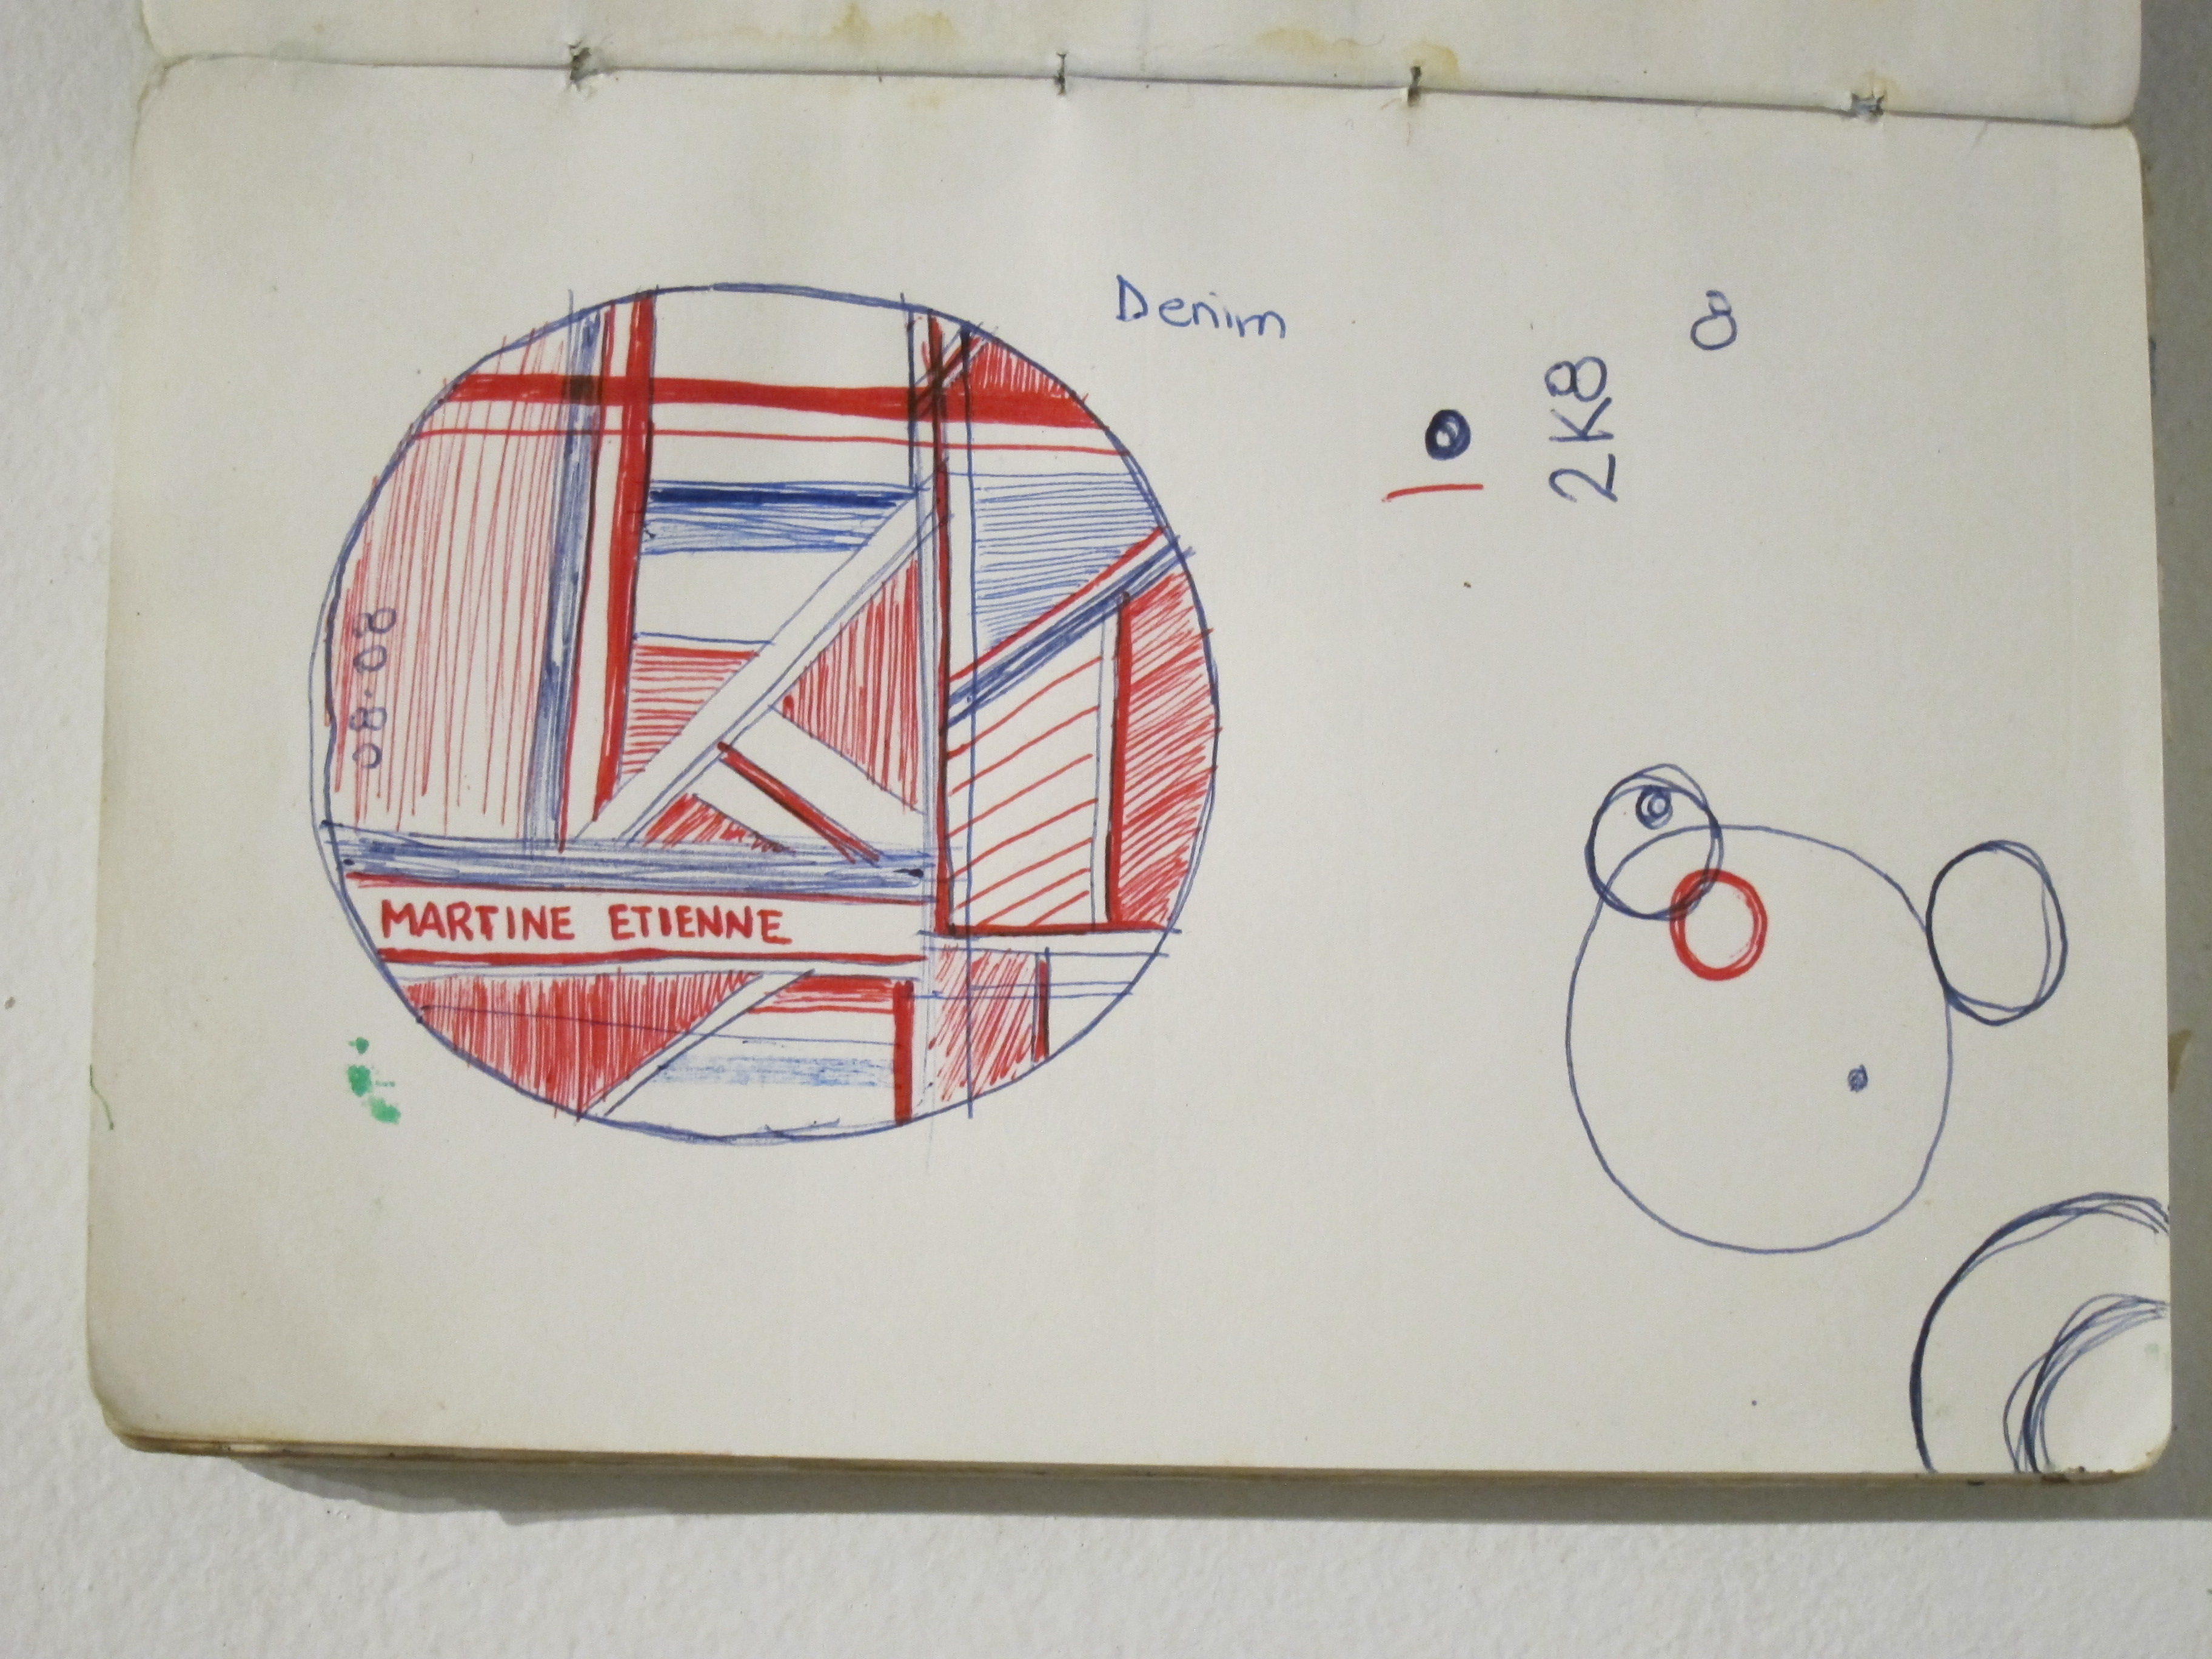 08·08
MARTINE ETIENNE
Denim
2K8
8